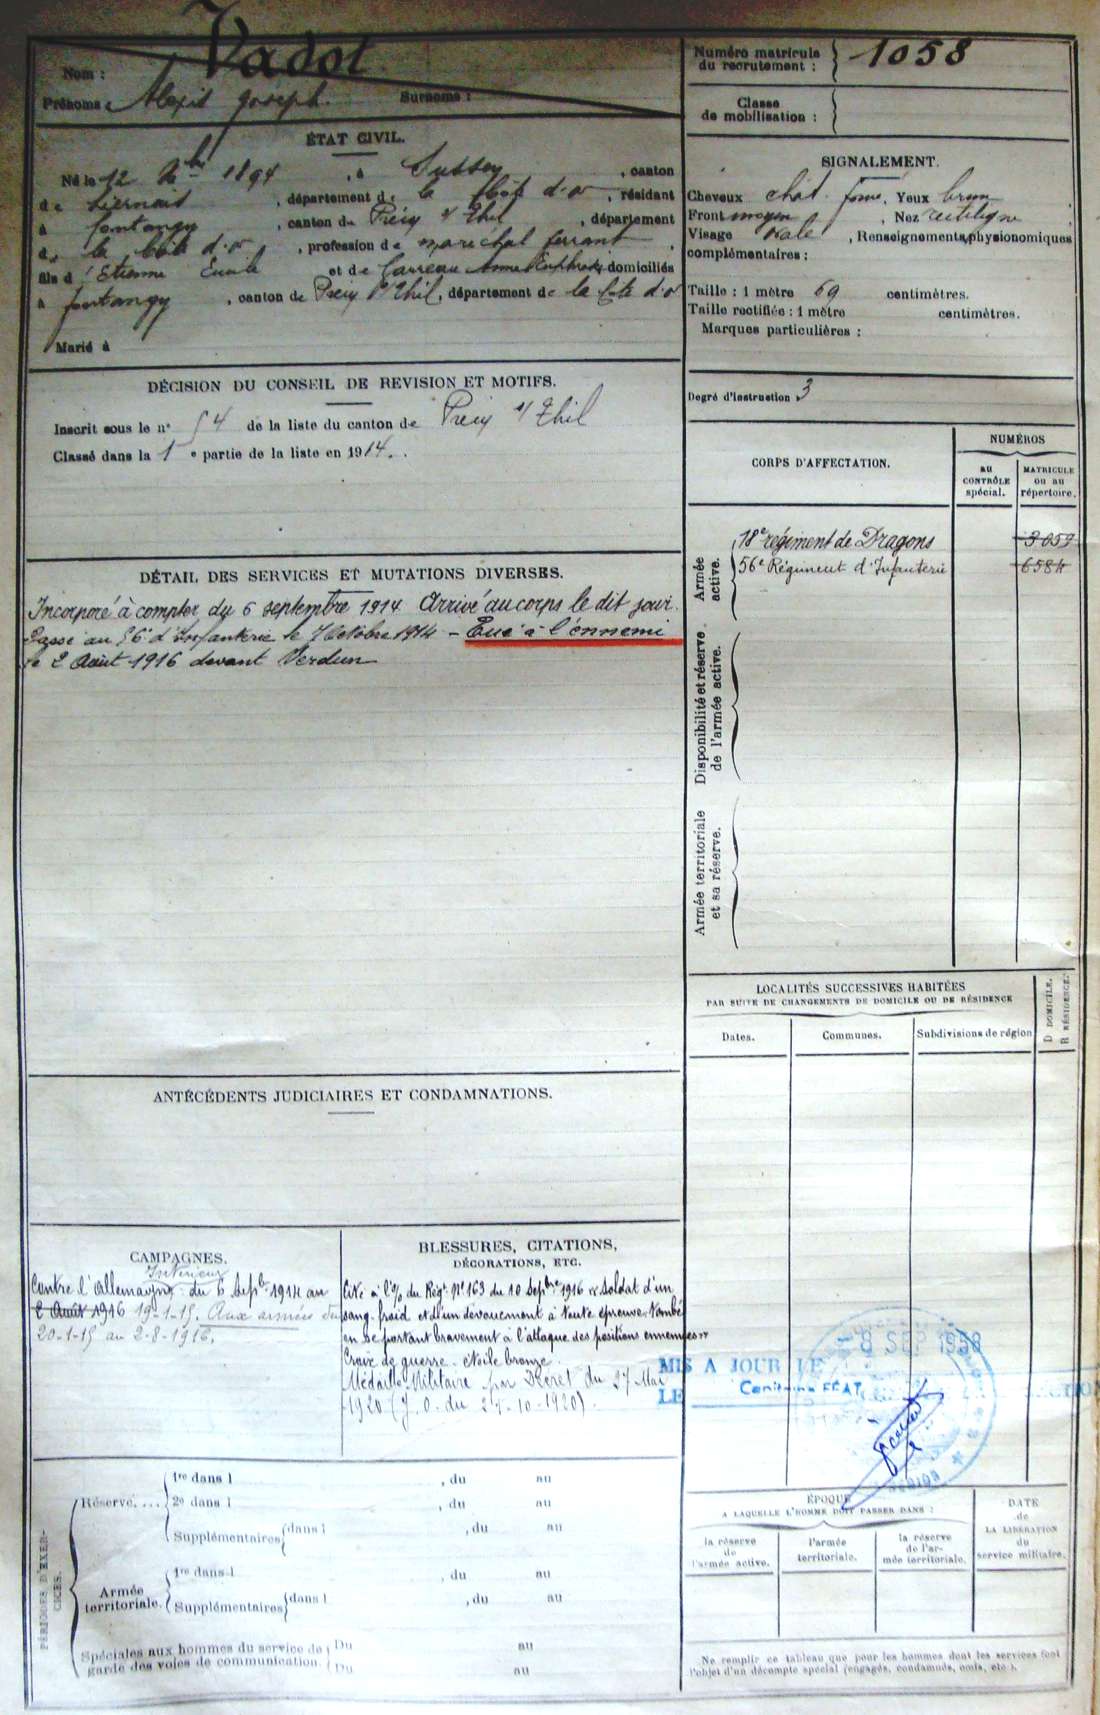 Nom : Vadot
Prénoms : Alexis Joseph. Surnoms :
Numéro matricule du recrutement : 1058
Classe de mobilisation :
ÉTAT CIVIL.
Né le 12 Xbre 1894, à Sussey, canton
de Liernais, département de la Côte d'or, résidant
à fontangy, canton de Précy s/ Thil, département
de la Côte d'or, profession de maréchal ferrant,
fils d' Etienne Emile et de Carreau Anne domiciliés
à fontangy, canton de Précy s/ Thil, département de la Côte d'or
Marié à
SIGNALEMENT.
Cheveux chât. foncé, Yeux brun
Front moyen, Nez rectiligne
Visage ovale, Renseignements physionomiques
complémentaires :
Taille : 1 mètre 69 centimètres.
Taille rectifiée : 1 mètre centimètres.
Marques particulières :
DÉCISION DU CONSEIL DE REVISION ET MOTIFS.
Inscrit sous le n° 54 de la liste du canton de Précy s/ Thil
Classé dans la 1e partie de la liste en 1914.
Degré d'instruction 3
DÉTAIL DES SERVICES ET MUTATIONS DIVERSES.
Incorporé à compter du 6 septembre 1914 Arrivé au corps le dit jour.
Passé au 56e d'Infanterie le 7 Octobre 1914 – Tué à l'ennemi
le 2 Août 1916 devant Verdun
CORPS D'AFFECTATION.
NUMÉROS
au CONTRÔLE spécial.
MATRICULE ou au répertoire.
Armée active.
18e régiment de Dragons 3059
56e Régiment d'Infanterie 6584
Disponibilité et réserve de l'armée active.
Armée territoriale et sa réserve.
LOCALITÉS SUCCESSIVES HABITÉES
PAR SUITE DE CHANGEMENTS DE DOMICILE OU DE RÉSIDENCE
Dates. Communes. Subdivisions de région
D DOMICILE. R RÉSIDENCE.
ANTÉCÉDENTS JUDICIAIRES ET CONDAMNATIONS.
CAMPAGNES.
Intérieur
Contre l'Allemagne du 6 Septbre 1914 au
2 Août 1916 19-1-15. Aux armées du
20-1-15 au 2-8-1916.
BLESSURES, CITATIONS,
DÉCORATIONS, ETC.
Cité à l'O/ du Régt N° 163 du 10 Septbre 1916 « Soldat d'un
sang-froid et d'un dévouement à toute épreuve. Tombé
en se portant bravement à l'attaque des positions ennemies »
Croix de guerre. étoile bronze.
Médaille Militaire par Décret du 27 Mai
1920 (J. O. du 27-10-1920).
8 SEP 1958
MIS A JOUR LE
LE Capitaine FÉAT
PÉRIODES D'EXERCICES.
Réserve....
1re dans l , du au
2e dans l , du au
Supplémentaires dans l , du au
Armée territoriale.
1re dans l , du au
Supplémentaires dans l , du au
Spéciales aux hommes du service de garde des voies de communication.
Du au
Du au
ÉPOQUE
A LAQUELLE L'HOMME DOIT PASSER DANS :
la réserve de l'armée active.
l'armée territoriale.
la réserve de l'armée territoriale.
DATE de LA LIBÉRATION du service militaire.
Ne remplir ce tableau que pour les hommes dont les services font
l'objet d'un décompte spécial (engagés, condamnés, omis, etc.).